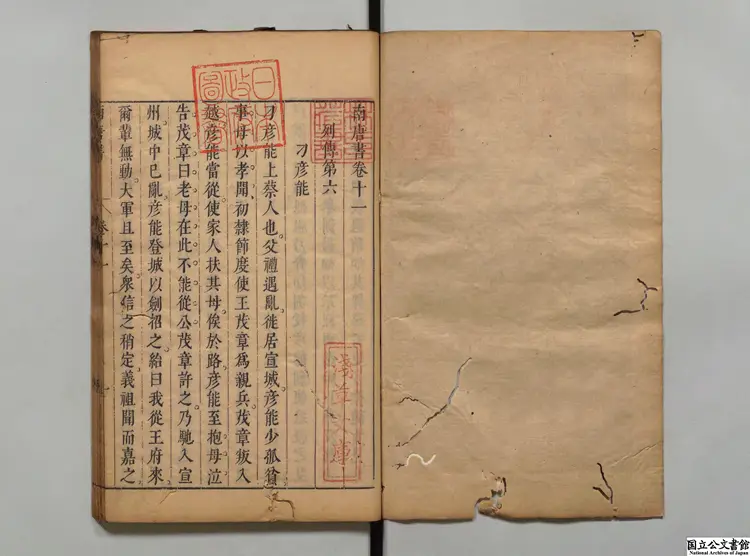 南唐書卷十一
列傳第六
刁彥能
刁彥能上蔡人也父禮遇亂徙居宣城彥能少孤貧
事母以孝聞初隸節度使王茂章爲親兵茂章叛入
越彥能當從使家人扶其母俟於路彥能至抱母泣
告茂章曰老母在此不能從公茂章許之乃馳入宣
州城中已亂彥能登城以劍招之紿曰我從王府來
爾輩無動大軍且至矣衆信之稍定義祖聞而嘉之
淺草文庫
日本政府圖書
国立公文書館
National Archives of Japan